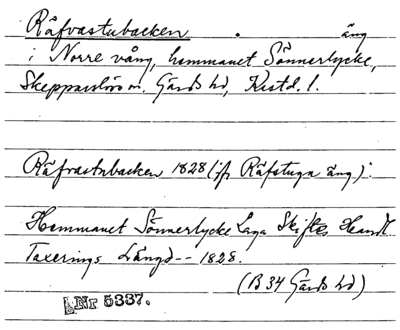 Räfvastubacken . äng
i Norre vång, hemmanet Sönnerlycke,
Skepparslövs sn. Gärds hd, Kristd. l.
Räfvastubacken 1828 (jfr Räfstuga äng):
Hemmanet Sönnerlycke Laga Skiftes Handl.
Taxerings Längd -- 1828.
(B 34 Gärds hd)
Nr 5337.